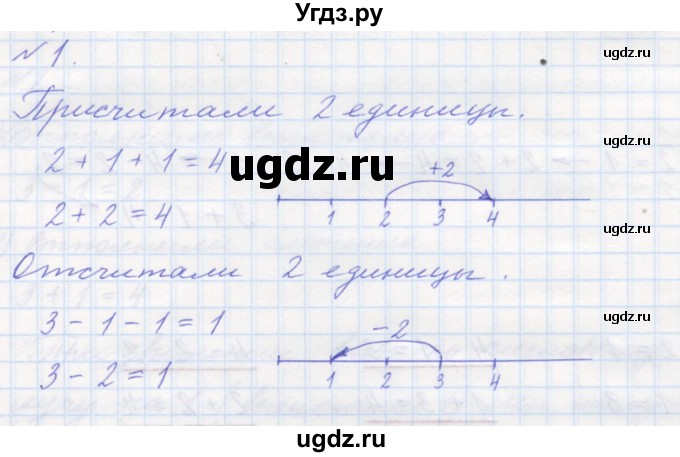 Угдз.ру
ugdz.ru
№ 1.
Присчитали 2 единицы.
ugdz.ru
2 + 1 + 1 = 4
ugdz.ru
+2
ugdz.ru
2 + 2 = 4
1 2 3 4
ugdz.ru
Отсчитали 2 единицы.
3 - 1 - 1 = 1
ugdz.ru
-2
3 - 2 = 1
1 2 3 4
ugdz.ru
ugdz.ru